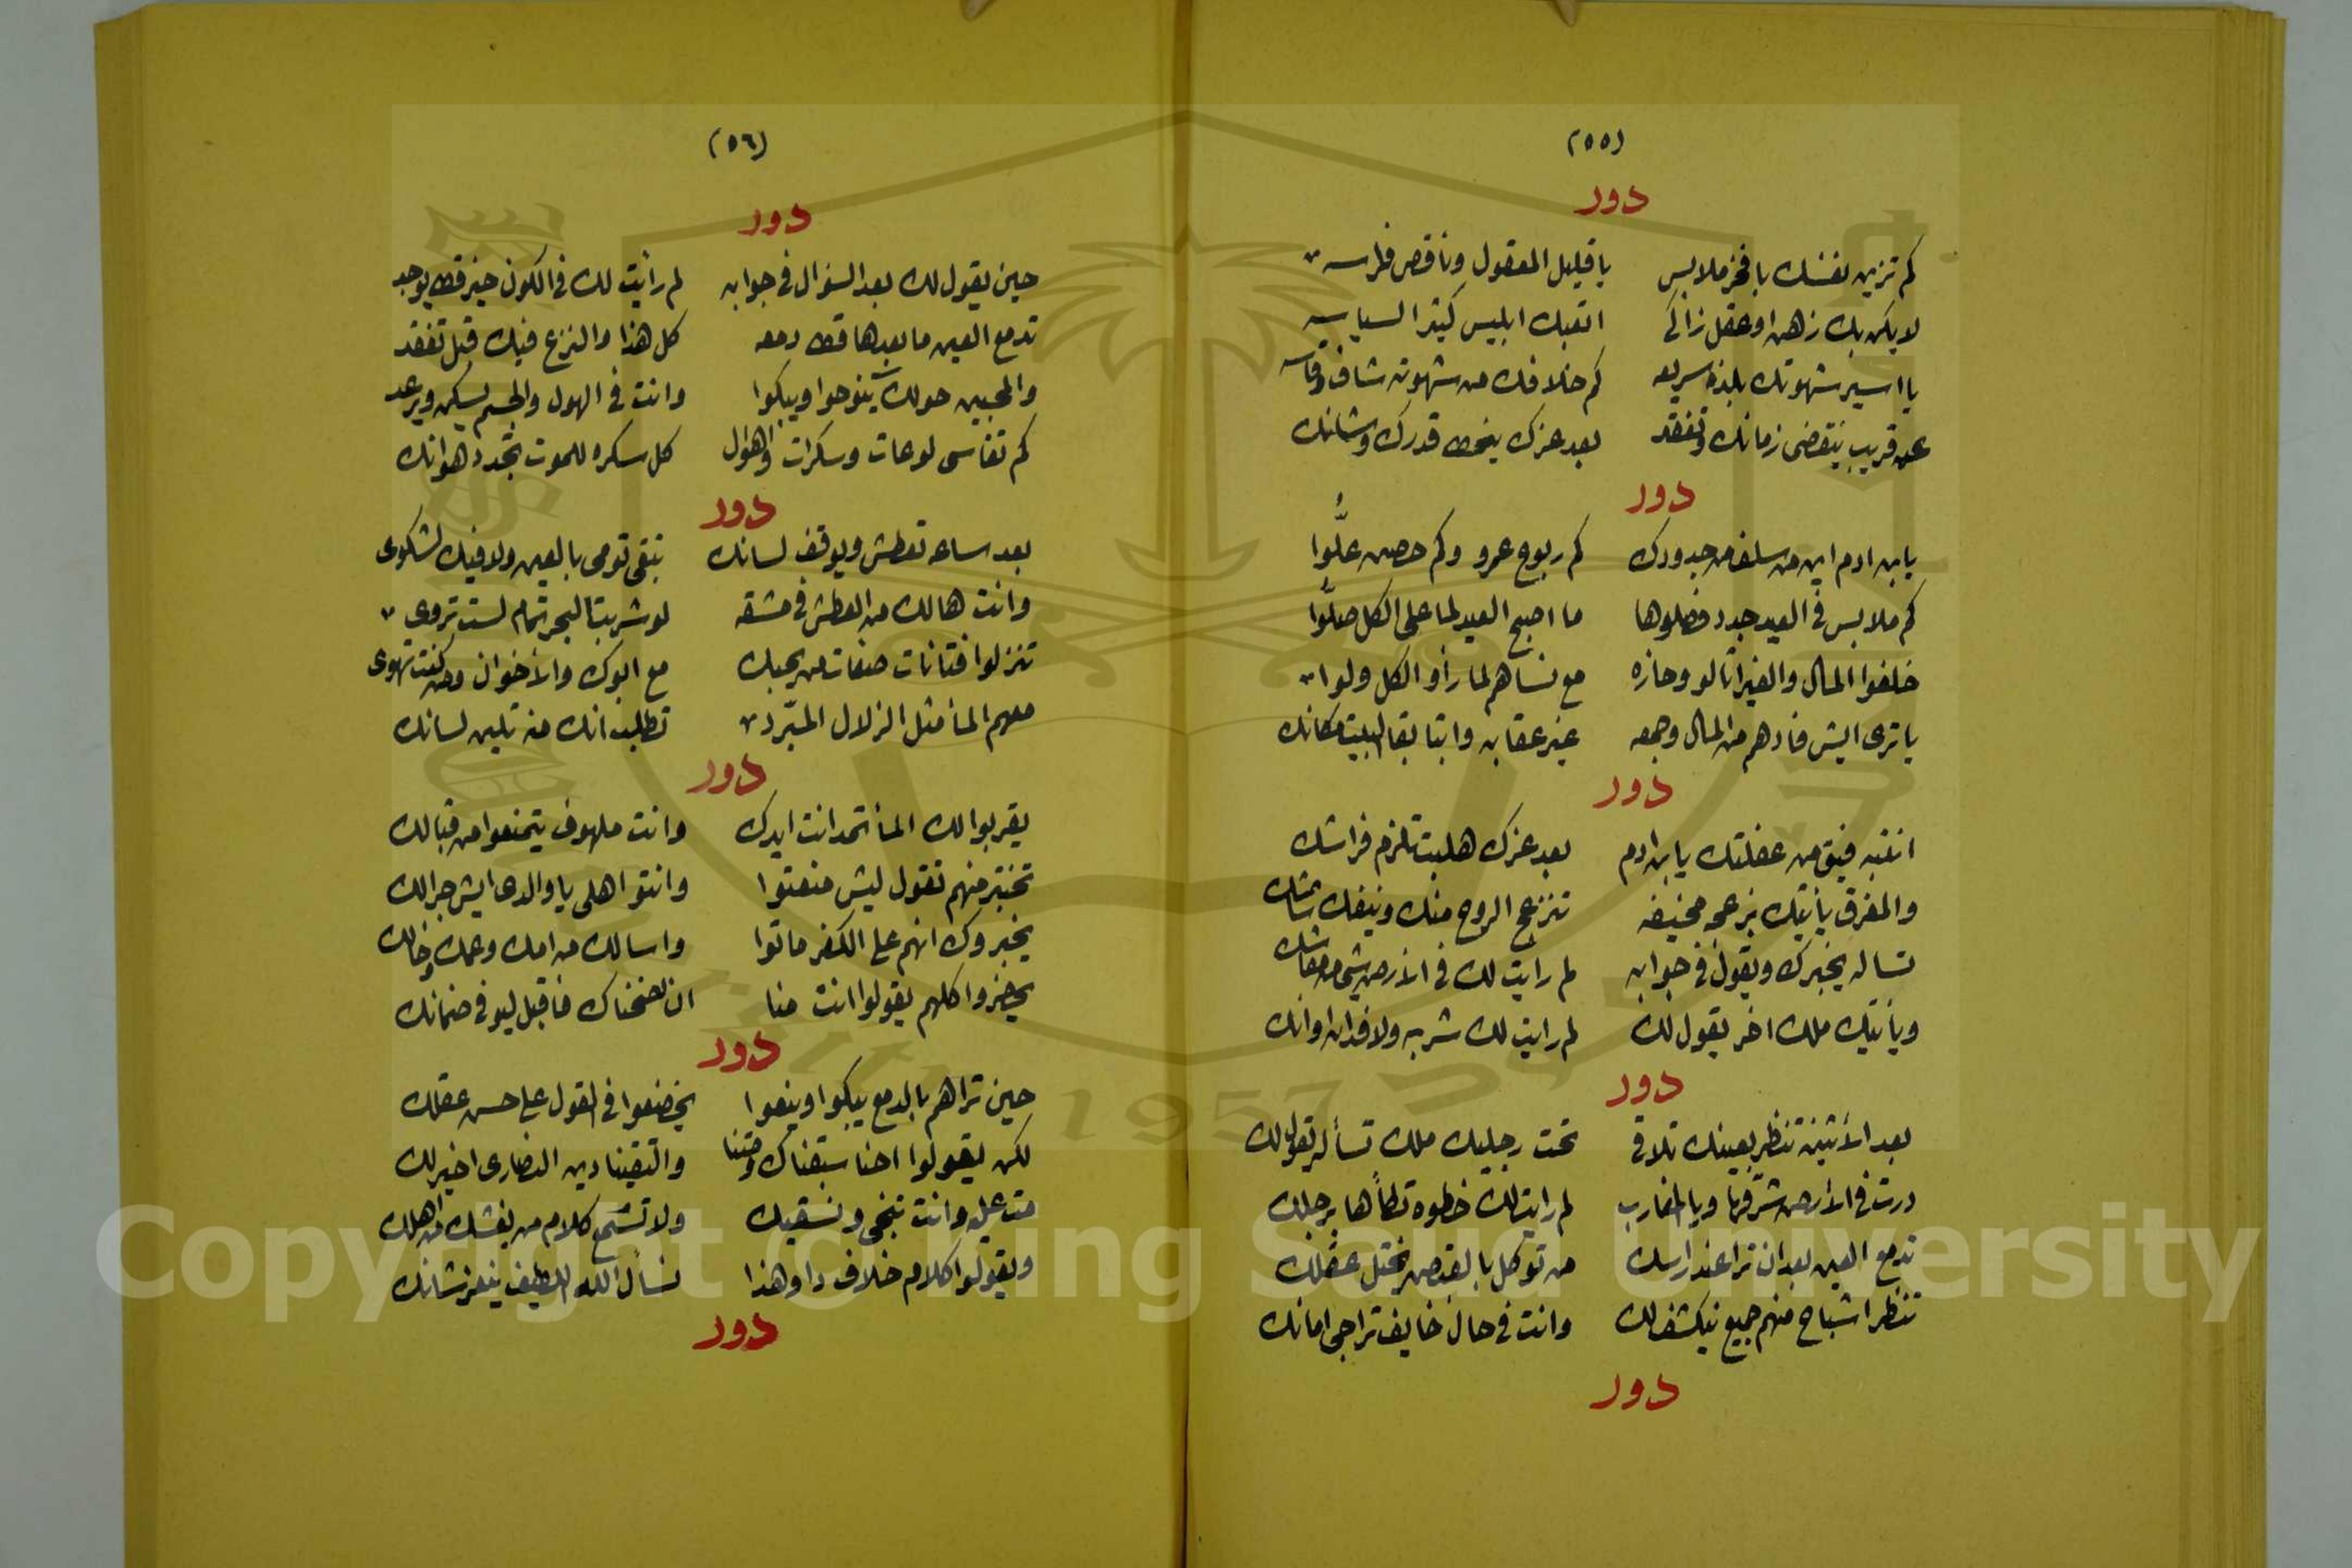 (٥٥)
دور
كم تزين نفسك بافخر ملابس يا قليل المعقول وناقص فراسه
لا يكن بك زهن او عقل زاكي اتعبك ابليس كيثر السياسه
يا اسير شهوتك بلذه سريعه كم خلافك من شهوته شاف وقاسه
عن قريب ينقضى زمانك وتفقد بعد عزك ينحط قدرك وشانك
دور
يا بن ادم اين من سلف من جدودك كم ربوع عمرو وكم حصن علُّوا
كم ملابس في العيد جدد فصلوها ما اصبح العيد لما على الكل صلُّوا
خلفوا المال والغير اتالو وحازه مع نساهم لما رأو الكل ولوا
يا ترى ايش فادهم من المال وجمعه غير عقابه وابتا بقا البيت مكانك
دور
انتبه فيق من غفلتك يا بن ادم بعد عزك هلبت تلزم فراشك
والمفرق يأتيك بزعجه مخيفه تنزعج الروح منك وينفك
تساله يخبرك ويقول في جوابه لم رايت لك في الأرض شي من معاشك
ويأتيك ملك اخر يقول لك لم رايت لك شربه ولا فدان اوانك
دور
بعد الأثنين تنظر بعينك تلاقى تحت رجليك ملك تسأله يقول لك
درت في الأرض شرقها ويا المغارب لم رايت لك خطوه تطأها برجلك
تدمع العين بعد ان ترا عند راسك من توكل بالقبض يختل عقلك
تنظر اشباح منهم جميع ينكشف لك وانت في حال خايف تراجى امانك
دور
(٥٦)
دور
حين يقول لك بعد السؤال في جوابه لم رأيت لك في الكون خير قط يوجد
تدمع العين ما بعدها قط دمعه كل هذا والنزع فيك قبل تفقد
والمحبين حولك ينوحوا ويبكوا وانت في الهول والجسم يسكن ويرعد
كم تقاسى لوعات وسكرات واهوال كل سكره للموت تجدد هوانك
دور
بعد ساعه تعطش ويوقف لسانك تبقى تومى بالعين ولا فيك لشكوى
وانت هالك من العطش في مشقه لو شربت البحر تمام لست تروى
تنزلوا فتانات صفات من يحبك مع ابوك والأخوان ومن كنت تهوى
معهم المأ مثل الزلال المبّرد تطلب انك منه تلين لسانك
دور
يقربوا لك المأ تمد انت ايدك وانت ملهوف يتمنعوا من قبالك
تختبر منهم تقول ليش منعتوا وانتو اهلى يا والدى ايش جرالك
يخبروك انهم على الكفر ماتوا واسالك من امك وعمك وخالك
يحضروا كلهم يقولوا انت منا ان نصحناك فاقبل ليو في ضمانك
دور
حين تراهم بالدمع يبكوا وينعوا يخضعوا في القول على حسن عقلك
لكن يقولوا احنا سبقناك ومتنا والتقينا دين النصارى اخير لك
مت عليه وانت تنجى ونسقيك ولا تسمع كلام من يغشك من اهلك
ويقولوا كلام خلاف دا وهذا نسأل الله اللطيف يعز شانك
دور
Copyright © King Saud University
1957